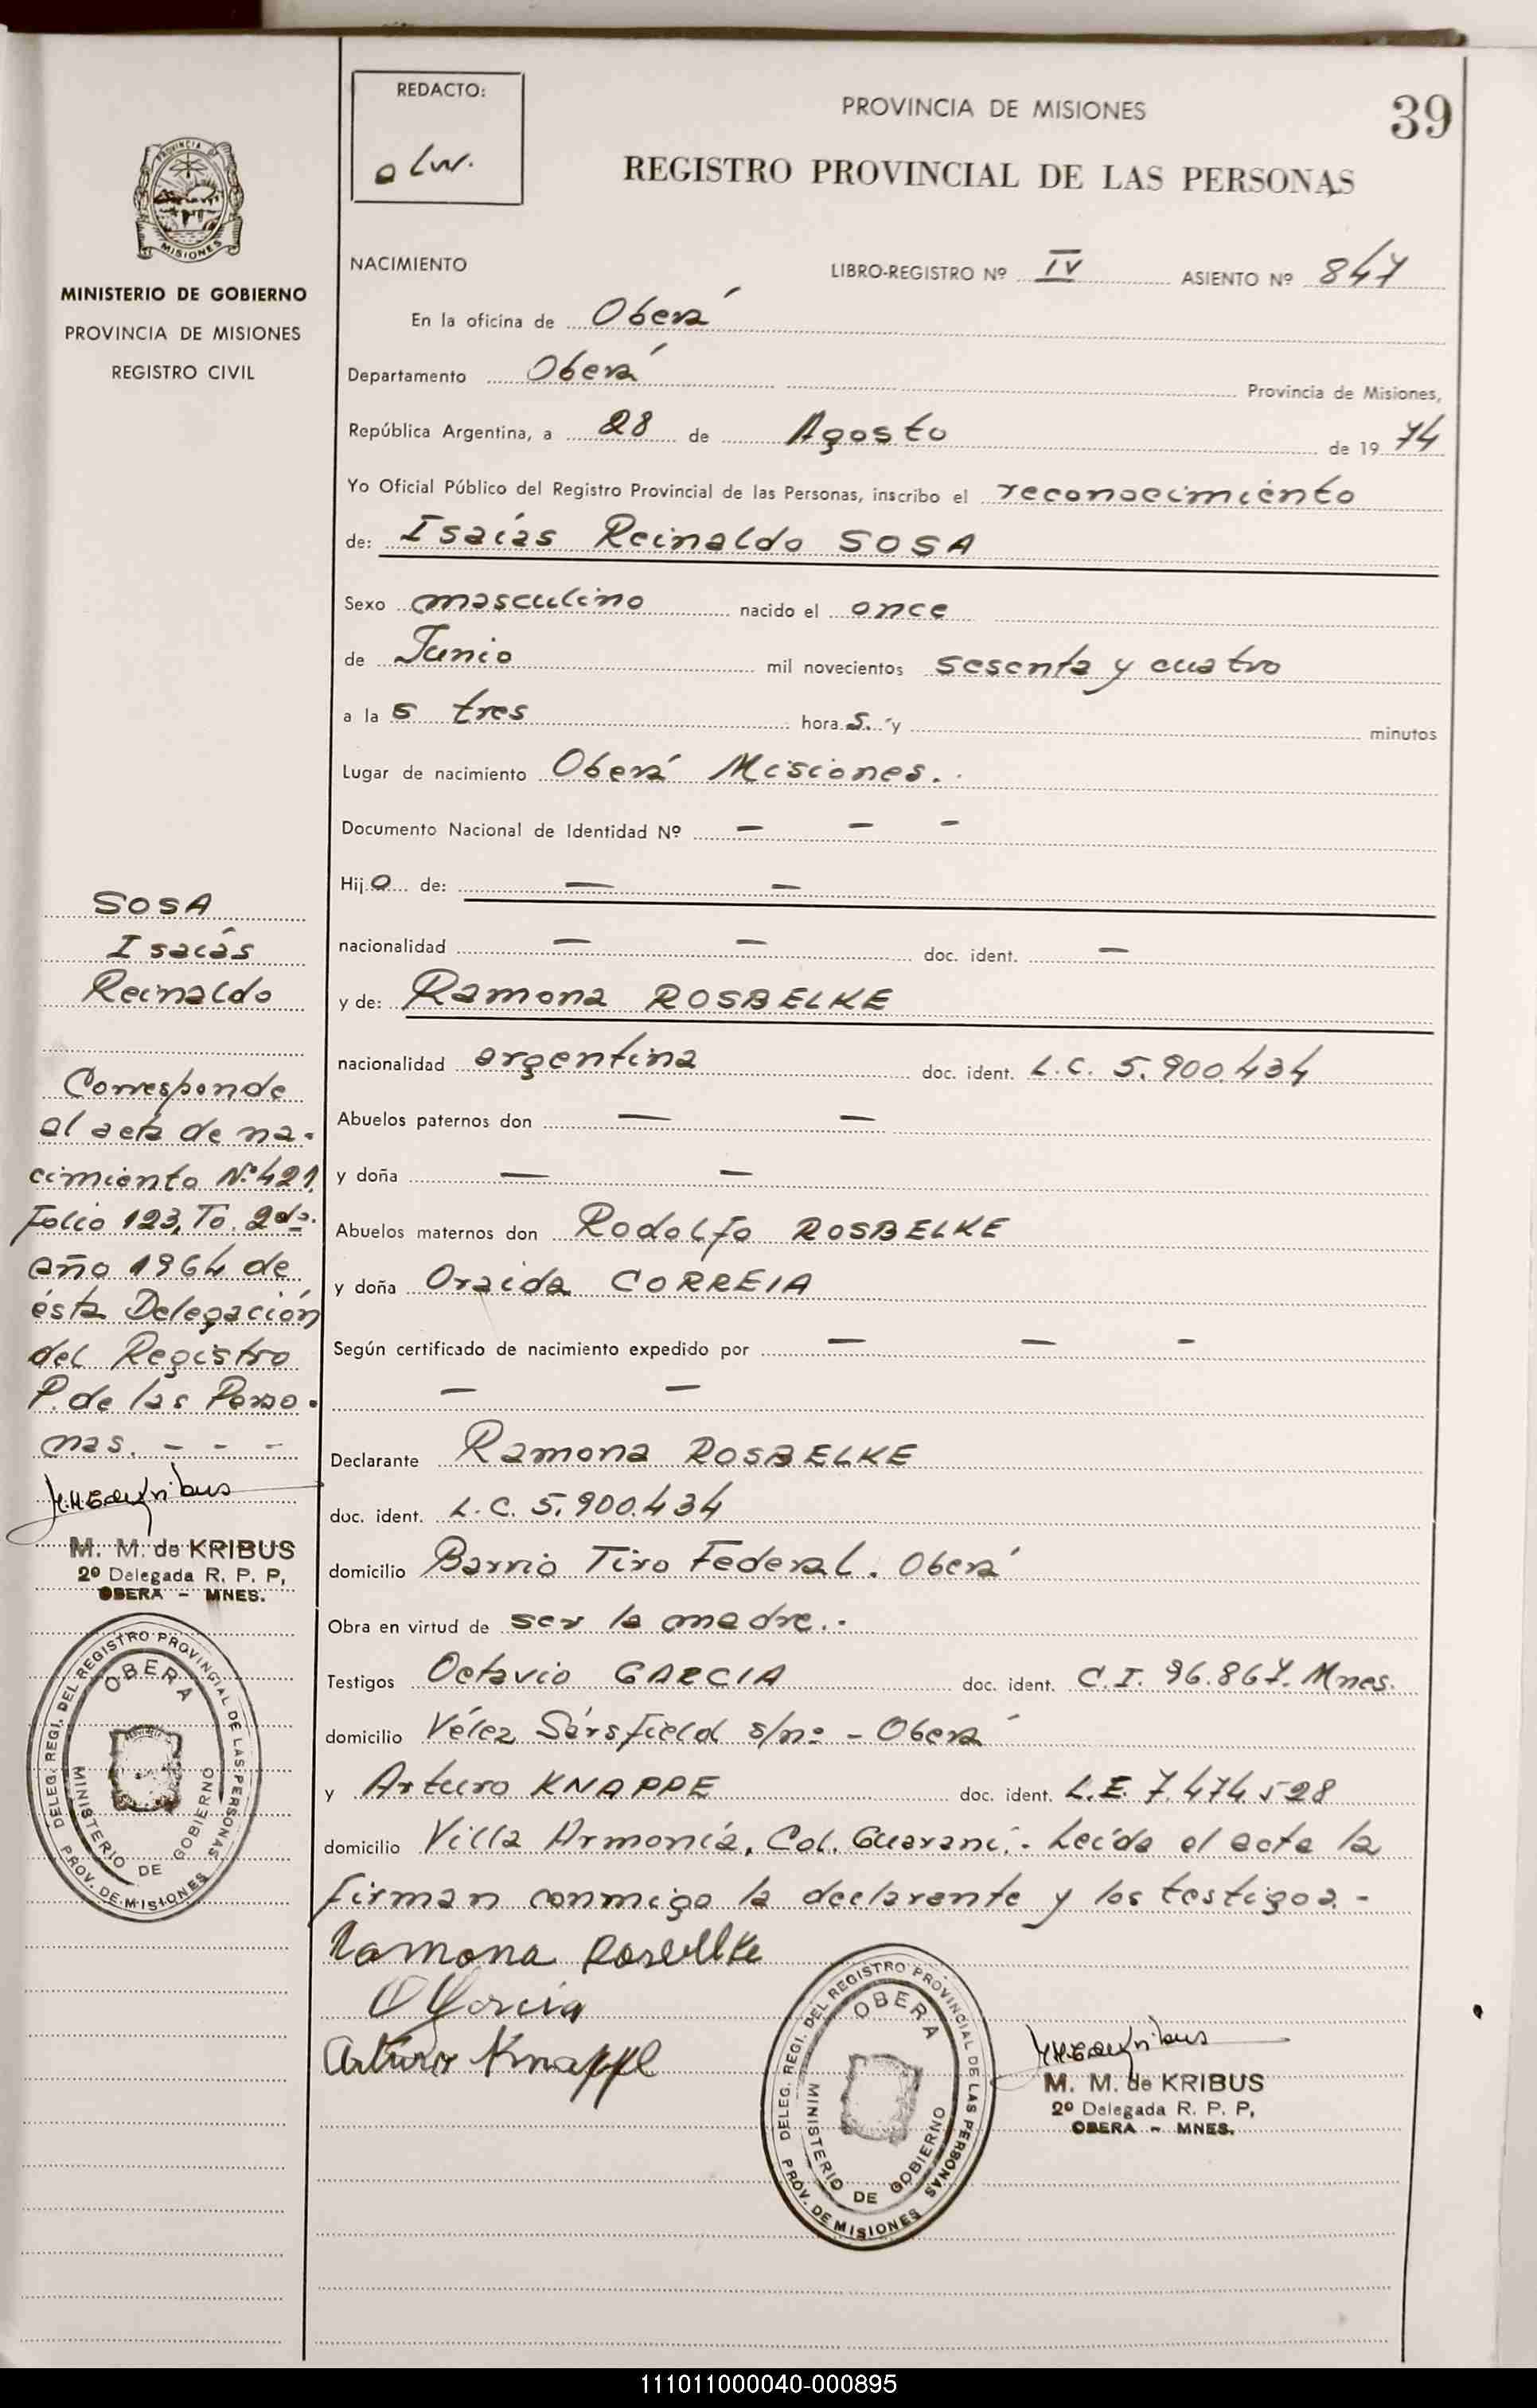 REDACTO:
PROVINCIA DE MISIONES
39
REGISTRO PROVINCIAL DE LAS PERSONAS
PROVINCIA DE
MISIONES
MINISTERIO DE GOBIERNO
PROVINCIA DE MISIONES
REGISTRO CIVIL
NACIMIENTO LIBRO-REGISTRO Nº IV ASIENTO Nº 847
En la oficina de Oberá
Departamento Oberá Provincia de Misiones,
República Argentina, a 28 de Agosto de 1974
Yo Oficial Público del Registro Provincial de las Personas, inscribo el reconocimiento
de: Isaías Reinaldo SOSA
Sexo masculino nacido el once
de Junio mil novecientos sesenta y cuatro
a la s tres hora s. y minutos
Lugar de nacimiento Oberá Misiones.
Documento Nacional de Identidad Nº — — -
Hijo de: — —
nacionalidad — — doc. ident. —
y de: Ramona ROSBELKE
nacionalidad argentina doc. ident. L.C. 5.900.434
Abuelos paternos don — —
y doña — —
Abuelos maternos don Rodolfo ROSBELKE
y doña Oraida CORREIA
Según certificado de nacimiento expedido por — — -
— —
Declarante Ramona ROSBELKE
doc. ident. L.C. 5.900.434
domicilio Barrio Tiro Federal. Oberá
Obra en virtud de ser la madre.-
Testigos Octavio GARCIA doc. ident. C.I. 96.867. Mnes.
domicilio Vélez Sársfield s/nº - Oberá
y Arturo KNAPPE doc. ident. L.E. 7.474.528
domicilio Villa Armonía, Col. Guaraní.- Leída el acta la
firman conmigo la declarante y los testigos.-
Ramona Rosbelke
O Garcia
Arturo Knappe
SOSA
Isaías
Reinaldo
Corresponde
al acta de na-
cimiento Nº 421,
Folio 123, To. 2do.
año 1964 de
ésta Delegación
del Registro
P. de las Perso-
nas. - - -
M. M. de KRIBUS
2º Delegada R. P. P,
OBERA - MNES.
DELEG. REGI. DEL REGISTRO PROVINCIAL DE LAS PERSONAS
OBERA
MINISTERIO DE GOBIERNO
PROV. DE MISIONES
DELEG. REGI. DEL REGISTRO PROVINCIAL DE LAS PERSONAS
OBERA
MINISTERIO DE GOBIERNO
PROV. DE MISIONES
M. M. de KRIBUS
2º Delegada R. P. P,
OBERA - MNES.
111011000040-000895